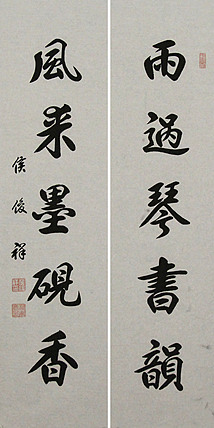 雨過琴書韻
風來墨硯香
侯俊祥